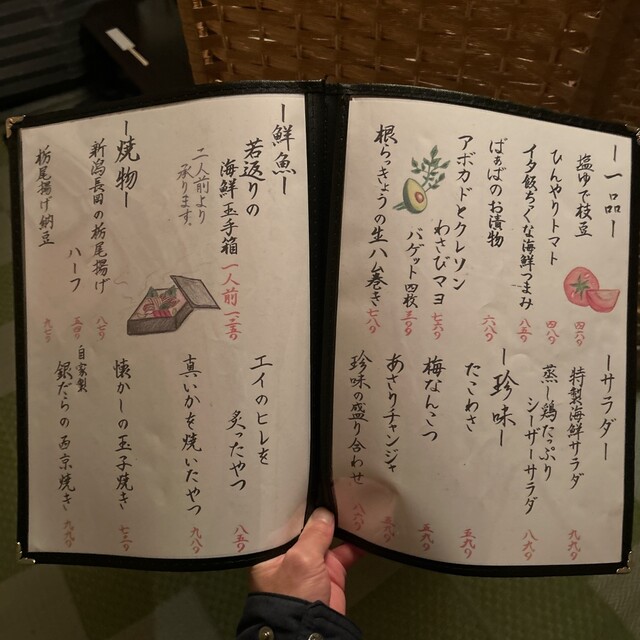 ー一品ー
塩ゆで枝豆 四六〇
ひんやりトマト 四八〇
イタ飯ちっくな海鮮つまみ 八五〇
ばぁばのお漬物 六八〇
アボカドとクレソン
わさびマヨ 七六〇
バゲット四枚 三〇〇
根らっきょうの生ハム巻き 七八〇
ーサラダー
特製海鮮サラダ 九六〇
蒸し鶏たっぷり
シーザーサラダ 八六〇
ー珍味ー
たこわさ 五六〇
梅なんこつ 五六〇
あさりチャンジャ
珍味の盛り合わせ 八八〇
ー鮮魚ー
若返りの
海鮮玉手箱 一人前
二人前より
承ります。
ー焼物ー
新潟長岡の栃尾揚げ 八七〇
ハーフ 五四〇
栃尾揚げ納豆 九七〇
エイのヒレを
炙ったやつ 八五〇
真いかを焼いたやつ 九八〇
懐かしの玉子焼き 七二〇
自家製
銀だらの西京焼き 九九〇